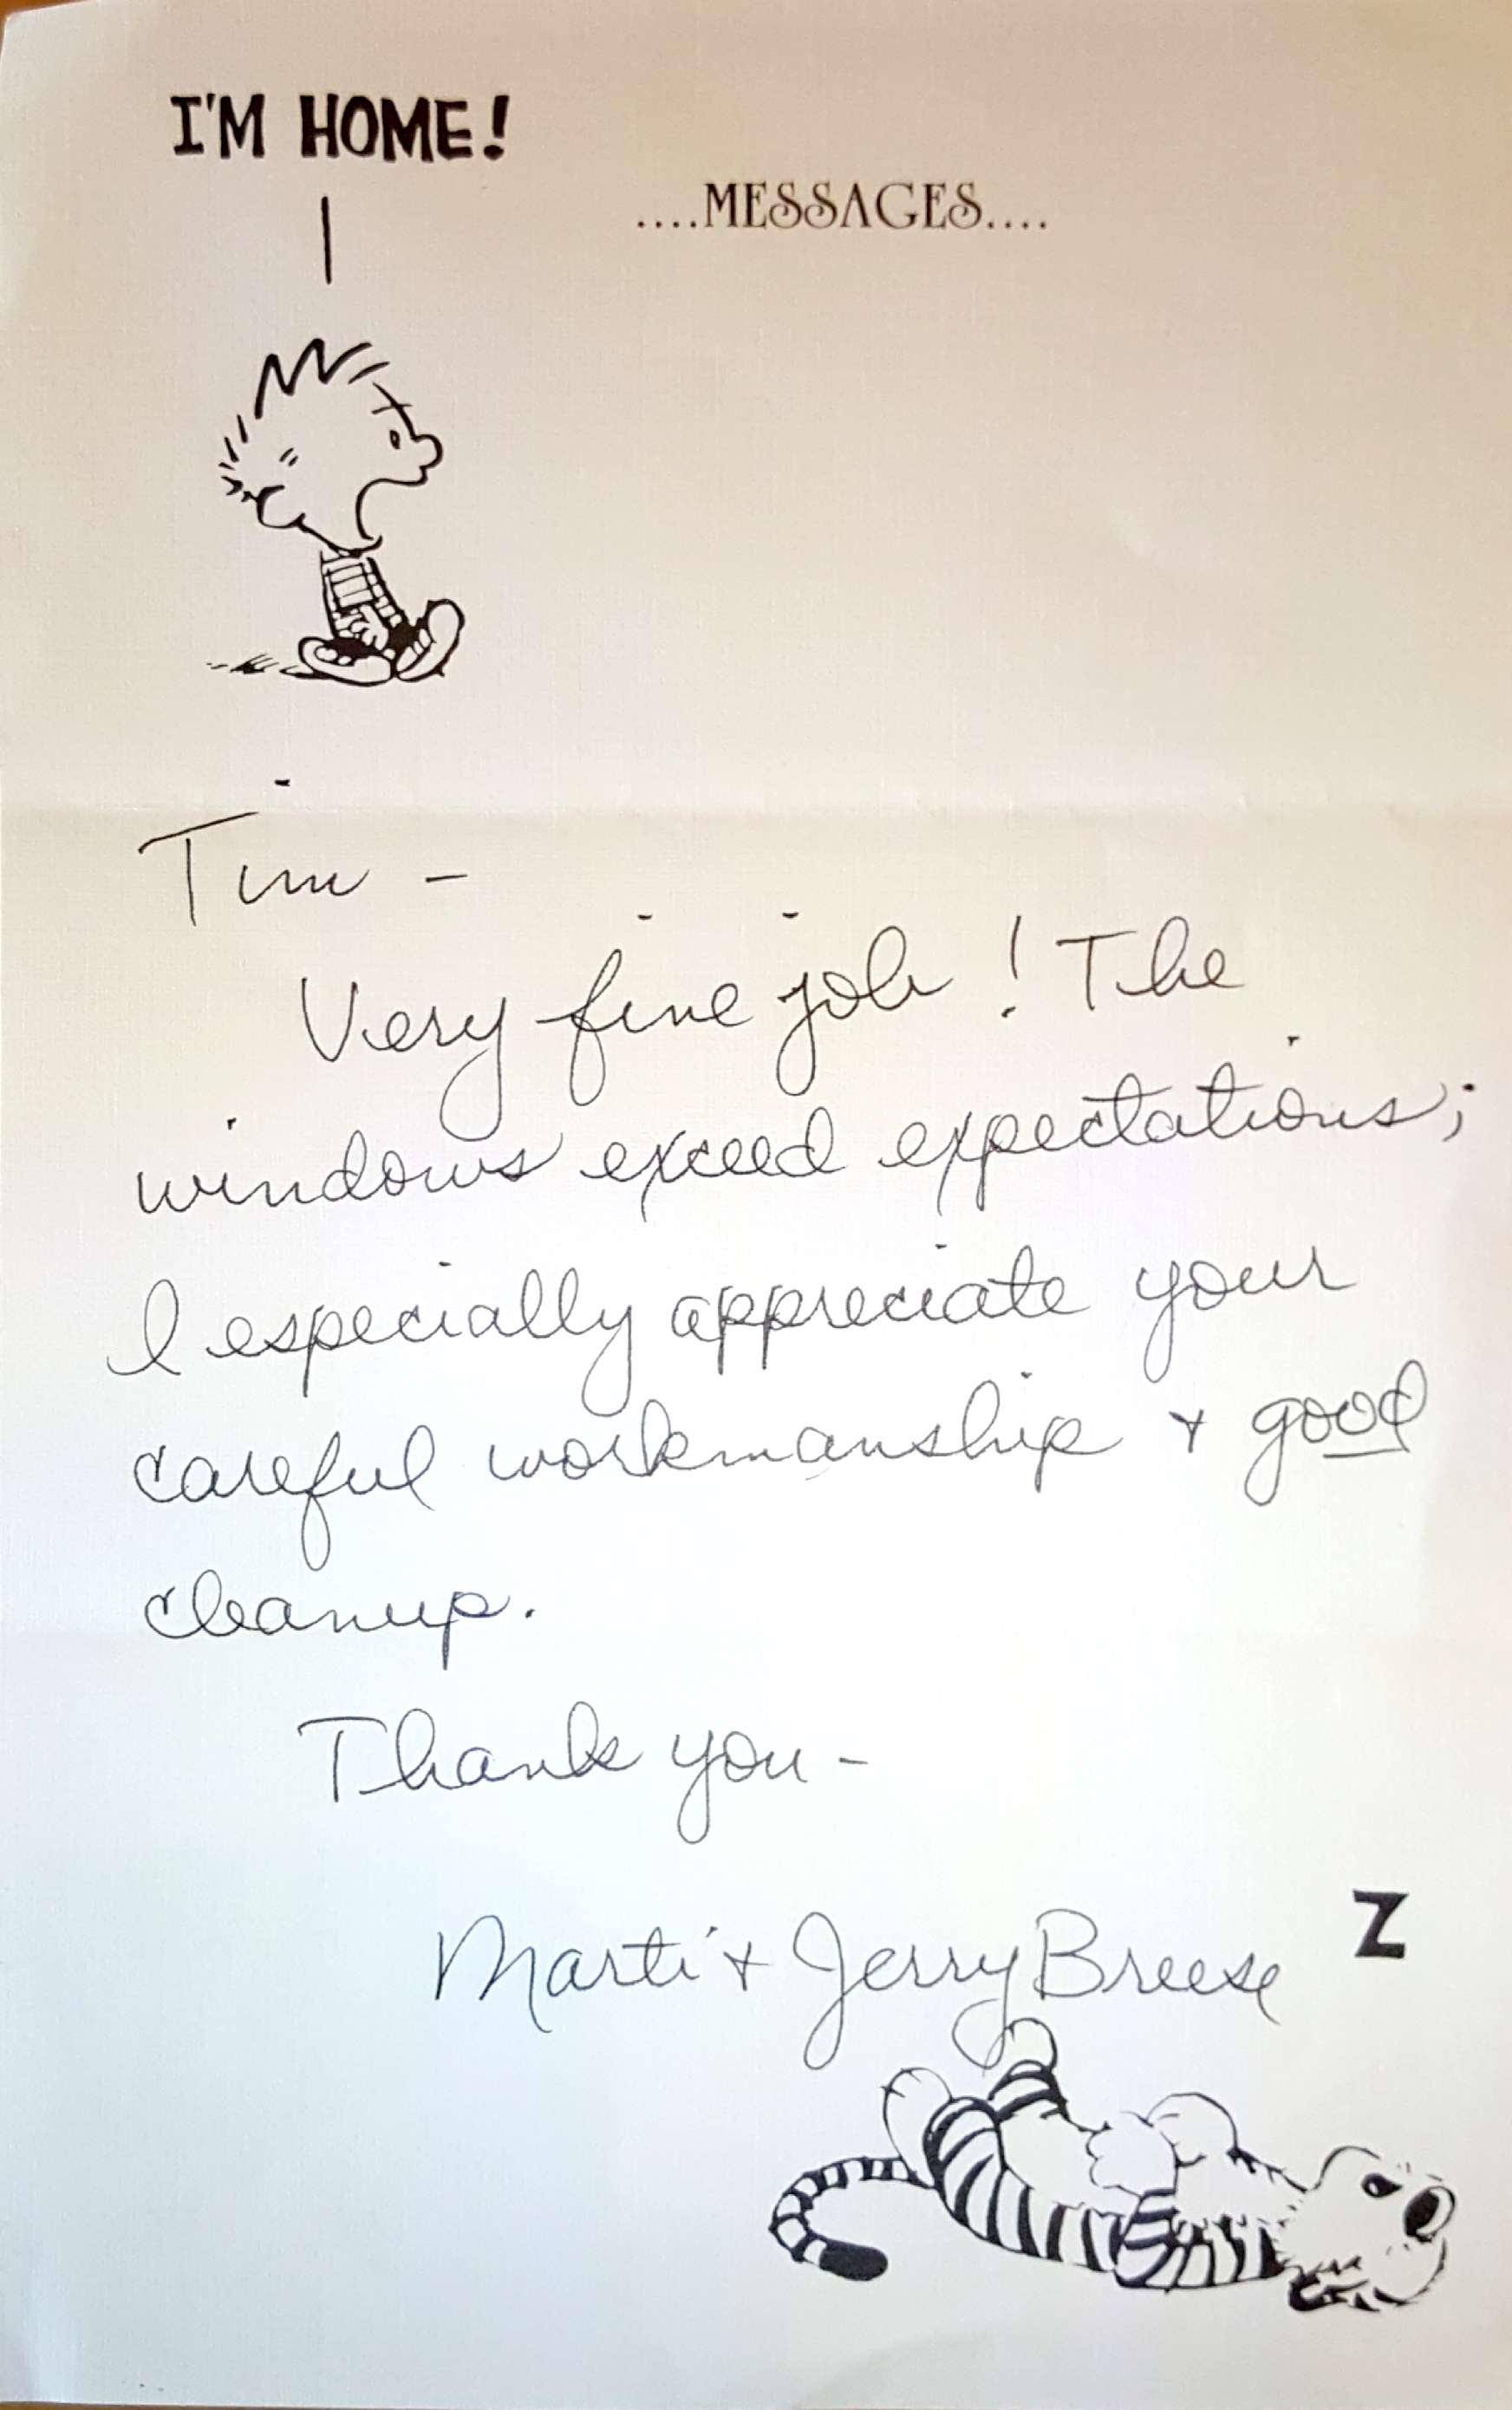 I'M HOME!
....MESSAGES....
Tim -
Very fine job! The
windows exceed expectations;
I especially appreciate your
careful workmanship + good
cleanup.
Thank you -
Marti + Jerry Breese
Z